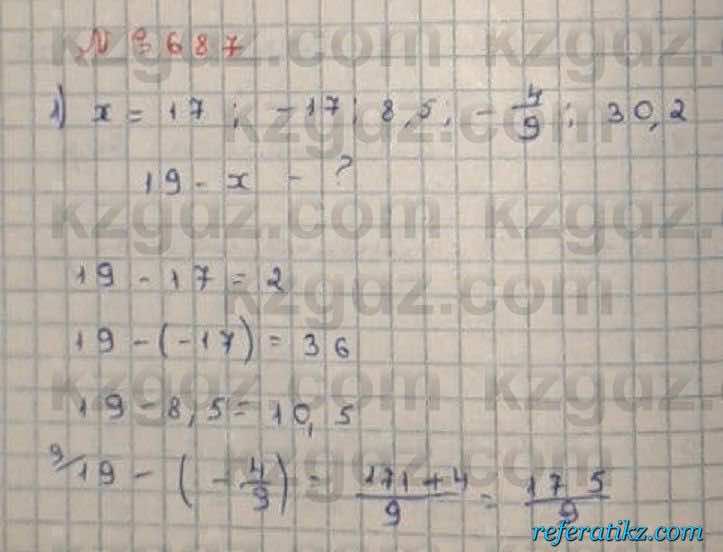 N 3687
1) x = 17 ; -17 ; 8,5 ; -4/9 ; 30,2
19 - x - ?
19 - 17 = 2
19 - (-17) = 36
19 - 8,5 = 10,5
9/19 - (-4/9) = (171+4)/9 = 175/9
kzgdz.com kzgdz.com
kzgdz.com kzgdz.com
kzgdz.com
kzgdz.com kzgdz.com
referatikz.com